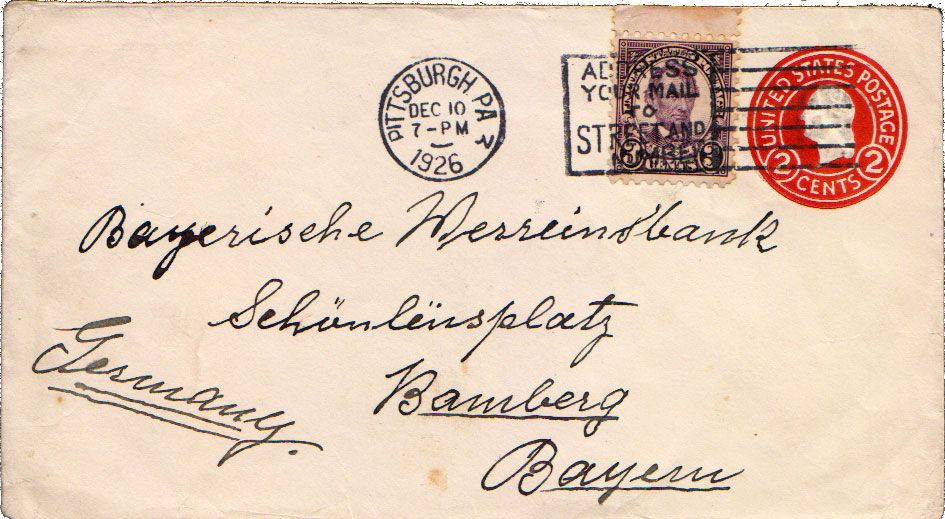 PITTSBURGH, PA
DEC 10
7-PM
1926
ADDRESS
YOUR MAIL
TO
STREET AND
NUMBER
3 CENTS 3
UNITED STATES POSTAGE
2 CENTS 2
Bayerische Werreinsbank
Schönlënsplatz
Bamberg
Bayern
Germany.